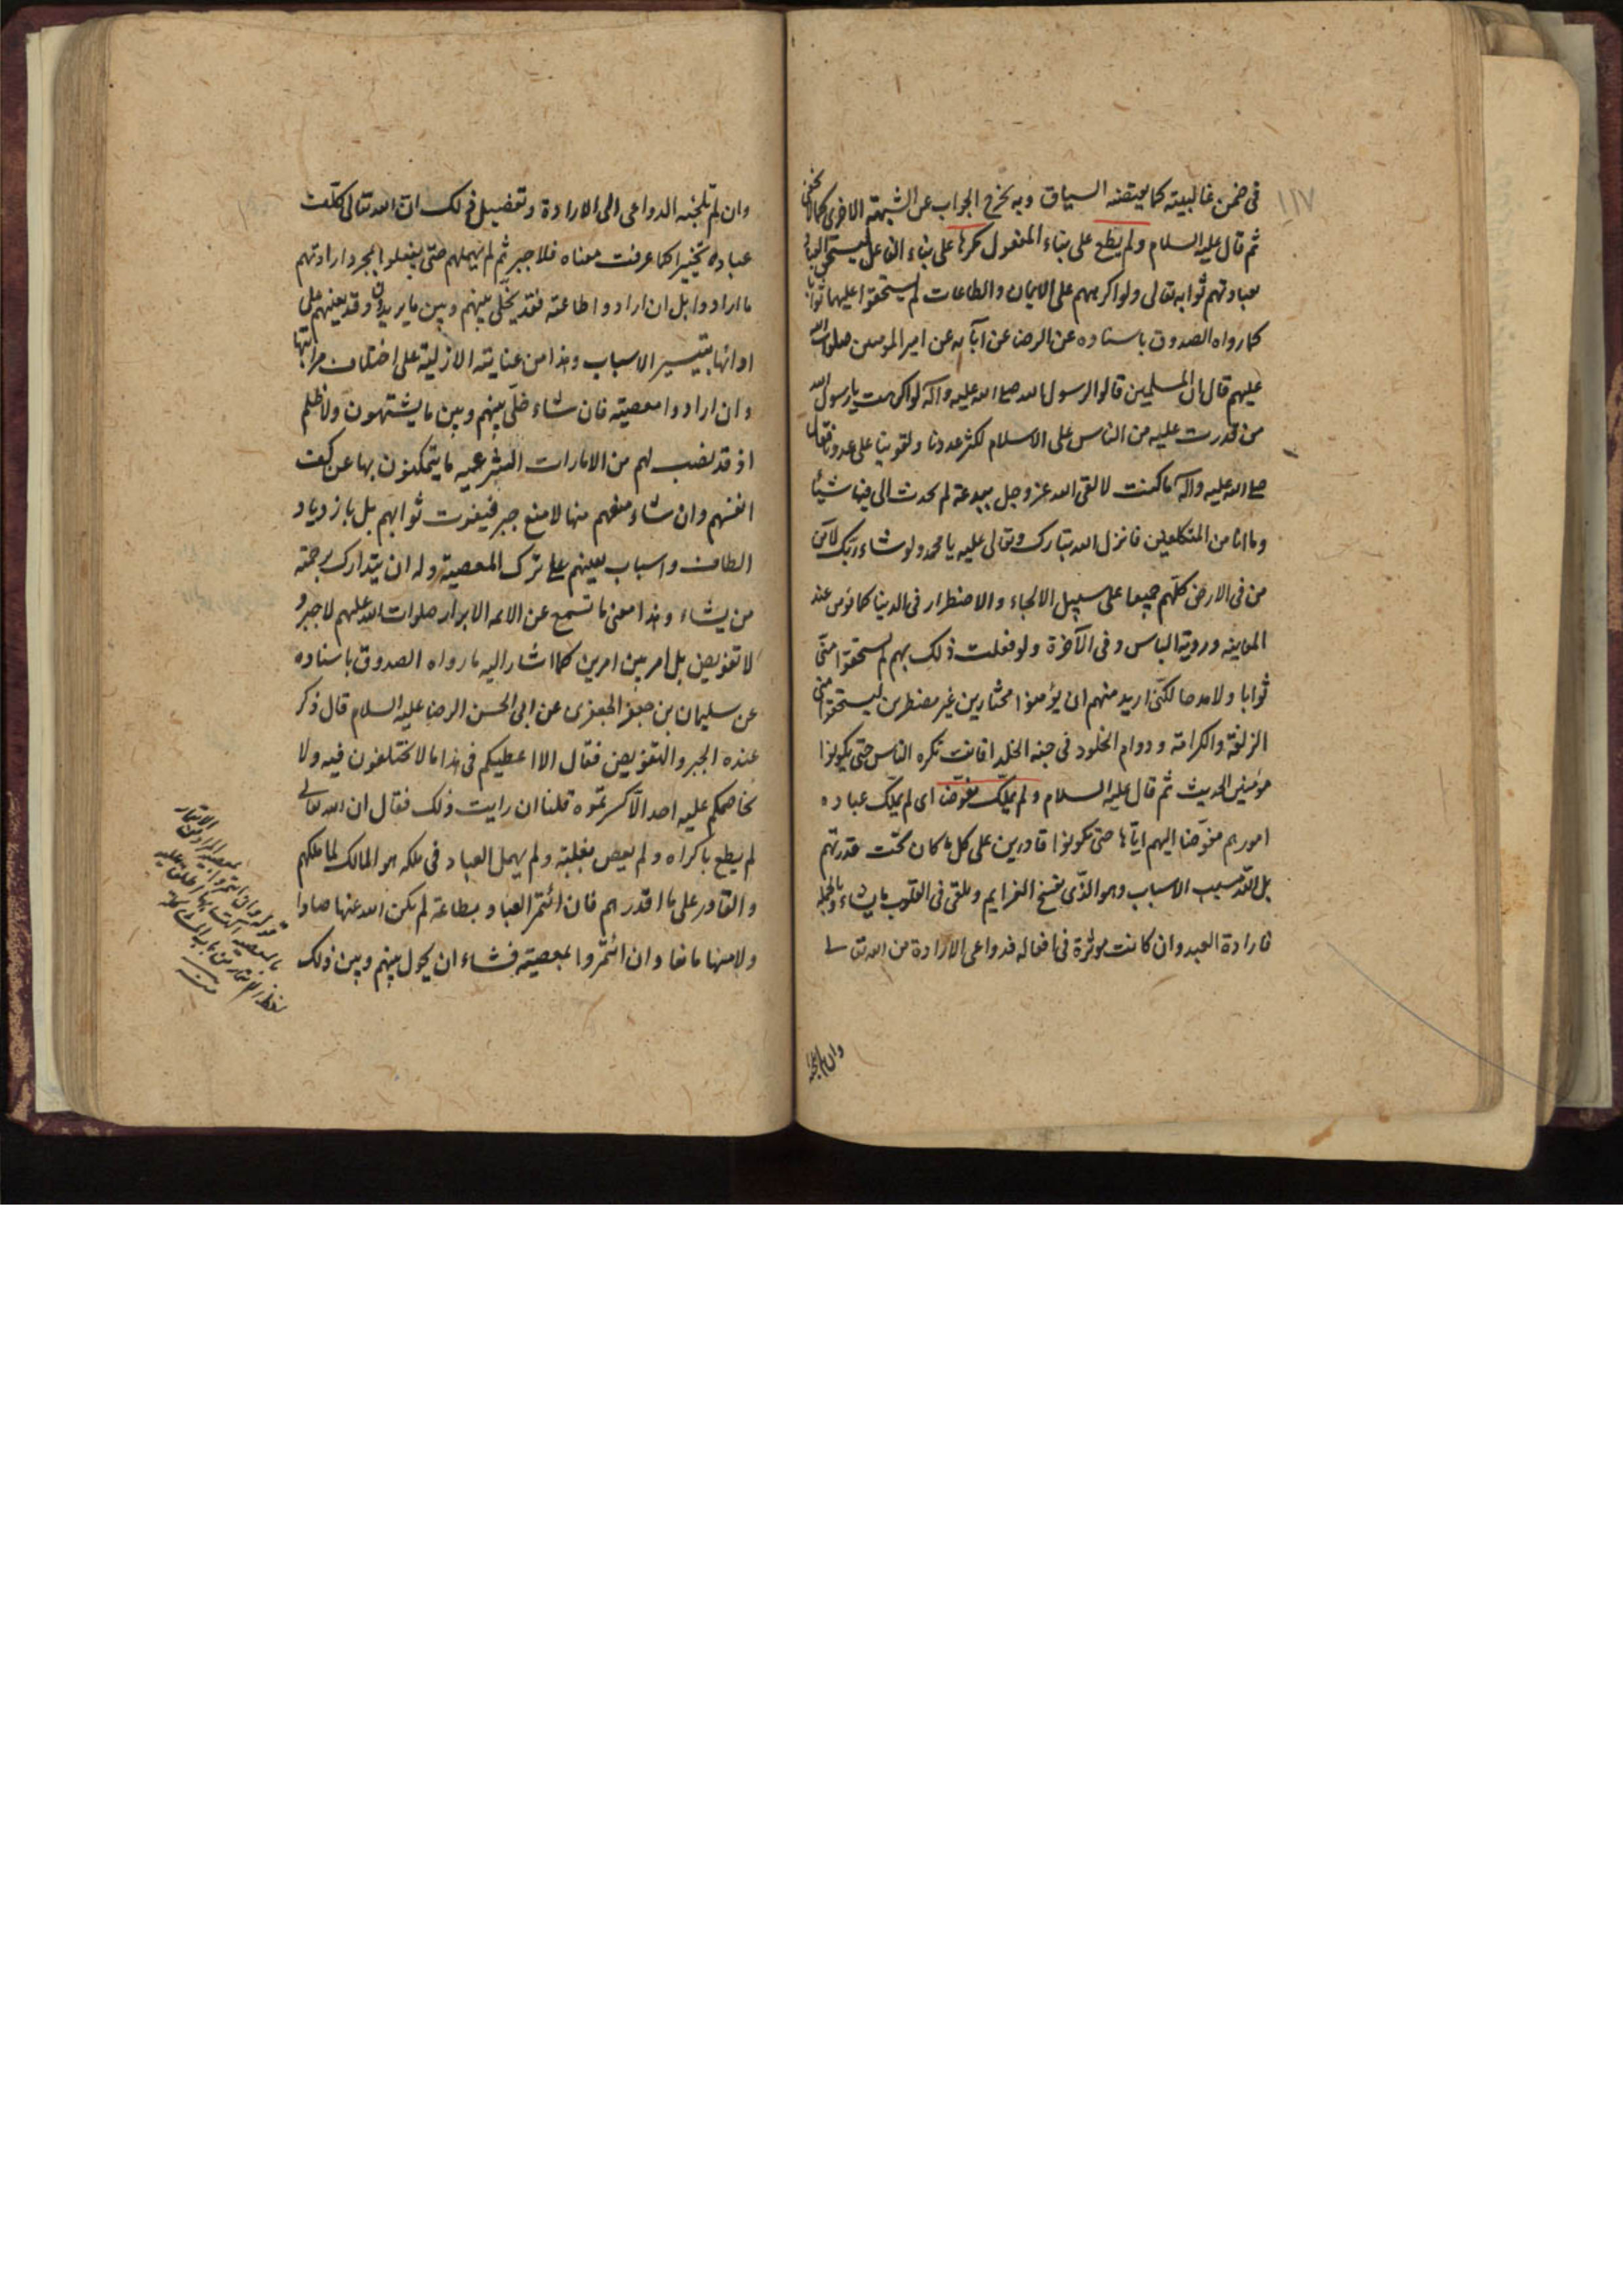 ١١٧
في ضمن غالبيته كما يقتضه السياق وبه يخرج الجواب عن الشبهة الاخرى كما لا يخفى
ثم قال عليه السلام ولم يطع على بناء المفعول مكرها على بناء الفاعل ليستحق العباد
بعبادتهم ثوابه تعالى ولو اكرههم على الايمان والطاعات لم يستحقوا عليها ثوابا
كما رواه الصدوق باسناده عن الرضا عن آبائه عن امير المومنين صلوات الله
عليهم قال ان المسلمين قالوا لرسول الله صلى الله عليه وآله لو اكرهت يا رسول الله
من قدرت عليه من الناس على الاسلام لكثر عددنا ولقوينا على عدونا فقال
صلى الله عليه وآله ما كنت لالقى الله عز وجل ببدعة لم يحدث الي فيها شيئا
وما انا من المتكلفين فانزل الله تبارك وتعالى عليه يا محمد ولو شاء ربك لآمن
من في الارض كلهم جميعا على سبيل الالجاء والاضطرار في الدنيا كما يؤمن عند
المعاينه ورؤية الباس وفي الآخرة ولو فعلت ذلك بهم لم يستحقوا مني
ثوابا ولا مدحا لكني اريد منهم ان يؤمنوا مختارين غير مضطرين ليستحقوا مني
الزلفة والكرامة ودوام الخلود في جنة الخلد افانت تكره الناس حتى يكونوا
مؤمنين الحديث ثم قال عليه السلام ولم يملك مفوضا اى لم يملك عباده
امورهم مفوضا اليهم اياها حتى يكونوا قادرين على كل ما كان تحت قدرتهم
بل الله مسبب الاسباب وهو الذى يفسخ العزايم ويلقى في القلوب ما يشاء وبالجملة
فارادة العبد وان كانت موثرة في افعاله فدواعى الارادة من الله تعالى
وان لم تلجئه
وان لم تلجئه الدواعى الى الارادة وتفصيل ذلك ان الله تعالى كلف
عباده تخييرا كما عرفت معناه فلا جبر ثم لم يهملهم حتى يفعلوا بمجرد ارادتهم
ما ارادوا بل ان ارادوا طاعته فقد يخلى بينهم وبين ما يريدون وقد يعينهم على
ادائها بتيسير الاسباب وهذا من عنايته الازلية على اختلاف مراتبها
وان ارادوا معصيته فان شاء خلى بينهم وبين ما يشتهون ولا ظلم
اذ قد نصب لهم من الامارات الشرعيه ما يتمكنون بها عن كف
انفسهم وان شاء منعهم منها لا منع جبر فيفوت ثوابهم بل بازدياد
الطاف واسباب يعينهم على ترك المعصية وله ان يتدارك برحمته
من يشاء وهذا معنى ما تسمع عن الائمه الابرار صلوات الله عليهم لا جبر و
لا تفويض بل امر بين امرين كما اشار اليه ما رواه الصدوق باسناده
عن سليمان بن جعفر الجعفرى عن ابى الحسن الرضا عليه السلام قال ذكر
عنده الجبر والتفويض فقال الا اعطيكم فى هذا ما لا تختلفون فيه ولا
يخاصمكم عليه احد الا كسرتموه قلنا ان رايت ذلك فقال ان الله تعالى
لم يطع باكراه ولم يعص بغلبة ولم يهمل العباد فى ملكه هو المالك لما ملكهم
والقادر على ما اقدرهم فان ائتمر العباد بطاعة لم يكن الله عنها صادا
ولا منها مانعا وان ائتمروا بمعصيته فشاء ان يحول بينهم وبين ذلك
قوله وان ائتمروا بمعصيته